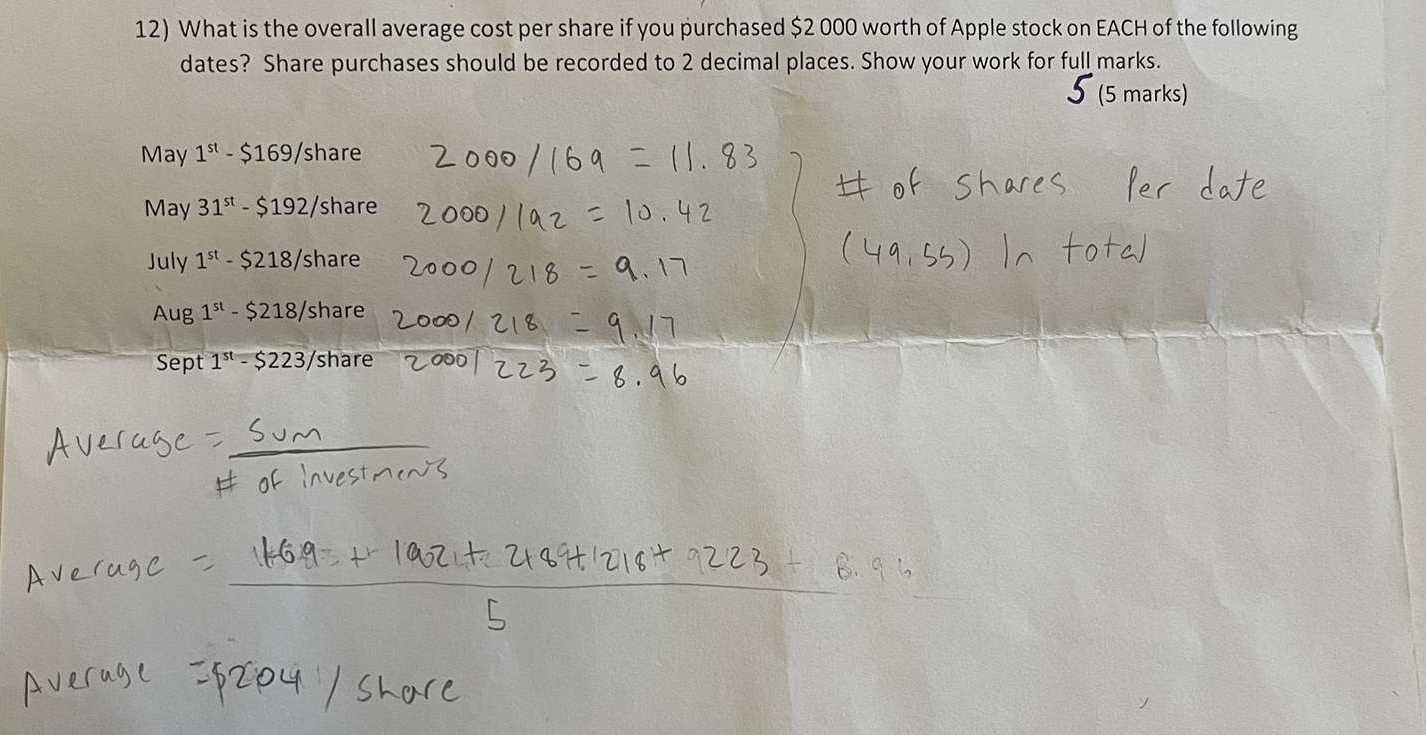 12) What is the overall average cost per share if you purchased $2 000 worth of Apple stock on EACH of the following
dates? Share purchases should be recorded to 2 decimal places. Show your work for full marks.
5 (5 marks)
May 1st - $169/share 2000/169 = 11.83
May 31st - $192/share 2000/192 = 10.42
July 1st - $218/share 2000/218 = 9.17
Aug 1st - $218/share 2000/218 = 9.17
Sept 1st - $223/share 2000/223 = 8.96
# of shares Per date
(49.55) In total
Average = Sum
# of investments
Average = 169 + 192 + 218 + 218 + 223 + 8.96
5
Average = $204 / share